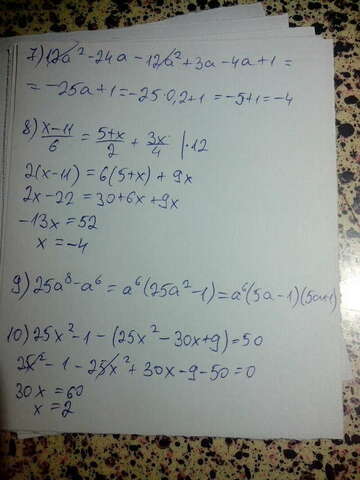 7) 12a² - 24a - 12a² + 3a - 4a + 1 =
= -25a + 1 = -25·0,2+1 = -5+1 = -4
8) (x-11)/6 = (5+x)/2 + 3x/4 |·12
2(x-11) = 6(5+x) + 9x
2x - 22 = 30 + 6x + 9x
-13x = 52
x = -4
9) 25a⁸ - a⁶ = a⁶(25a² - 1) = a⁶(5a-1)(5a+1)
10) 25x² - 1 - (25x² - 30x + 9) = 50
25x² - 1 - 25x² + 30x - 9 - 50 = 0
30x = 60
x = 2